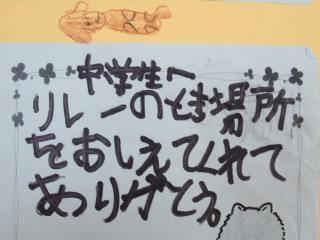 中学生へ
リレーのとき場所
をおしえてくれて
ありがとう。